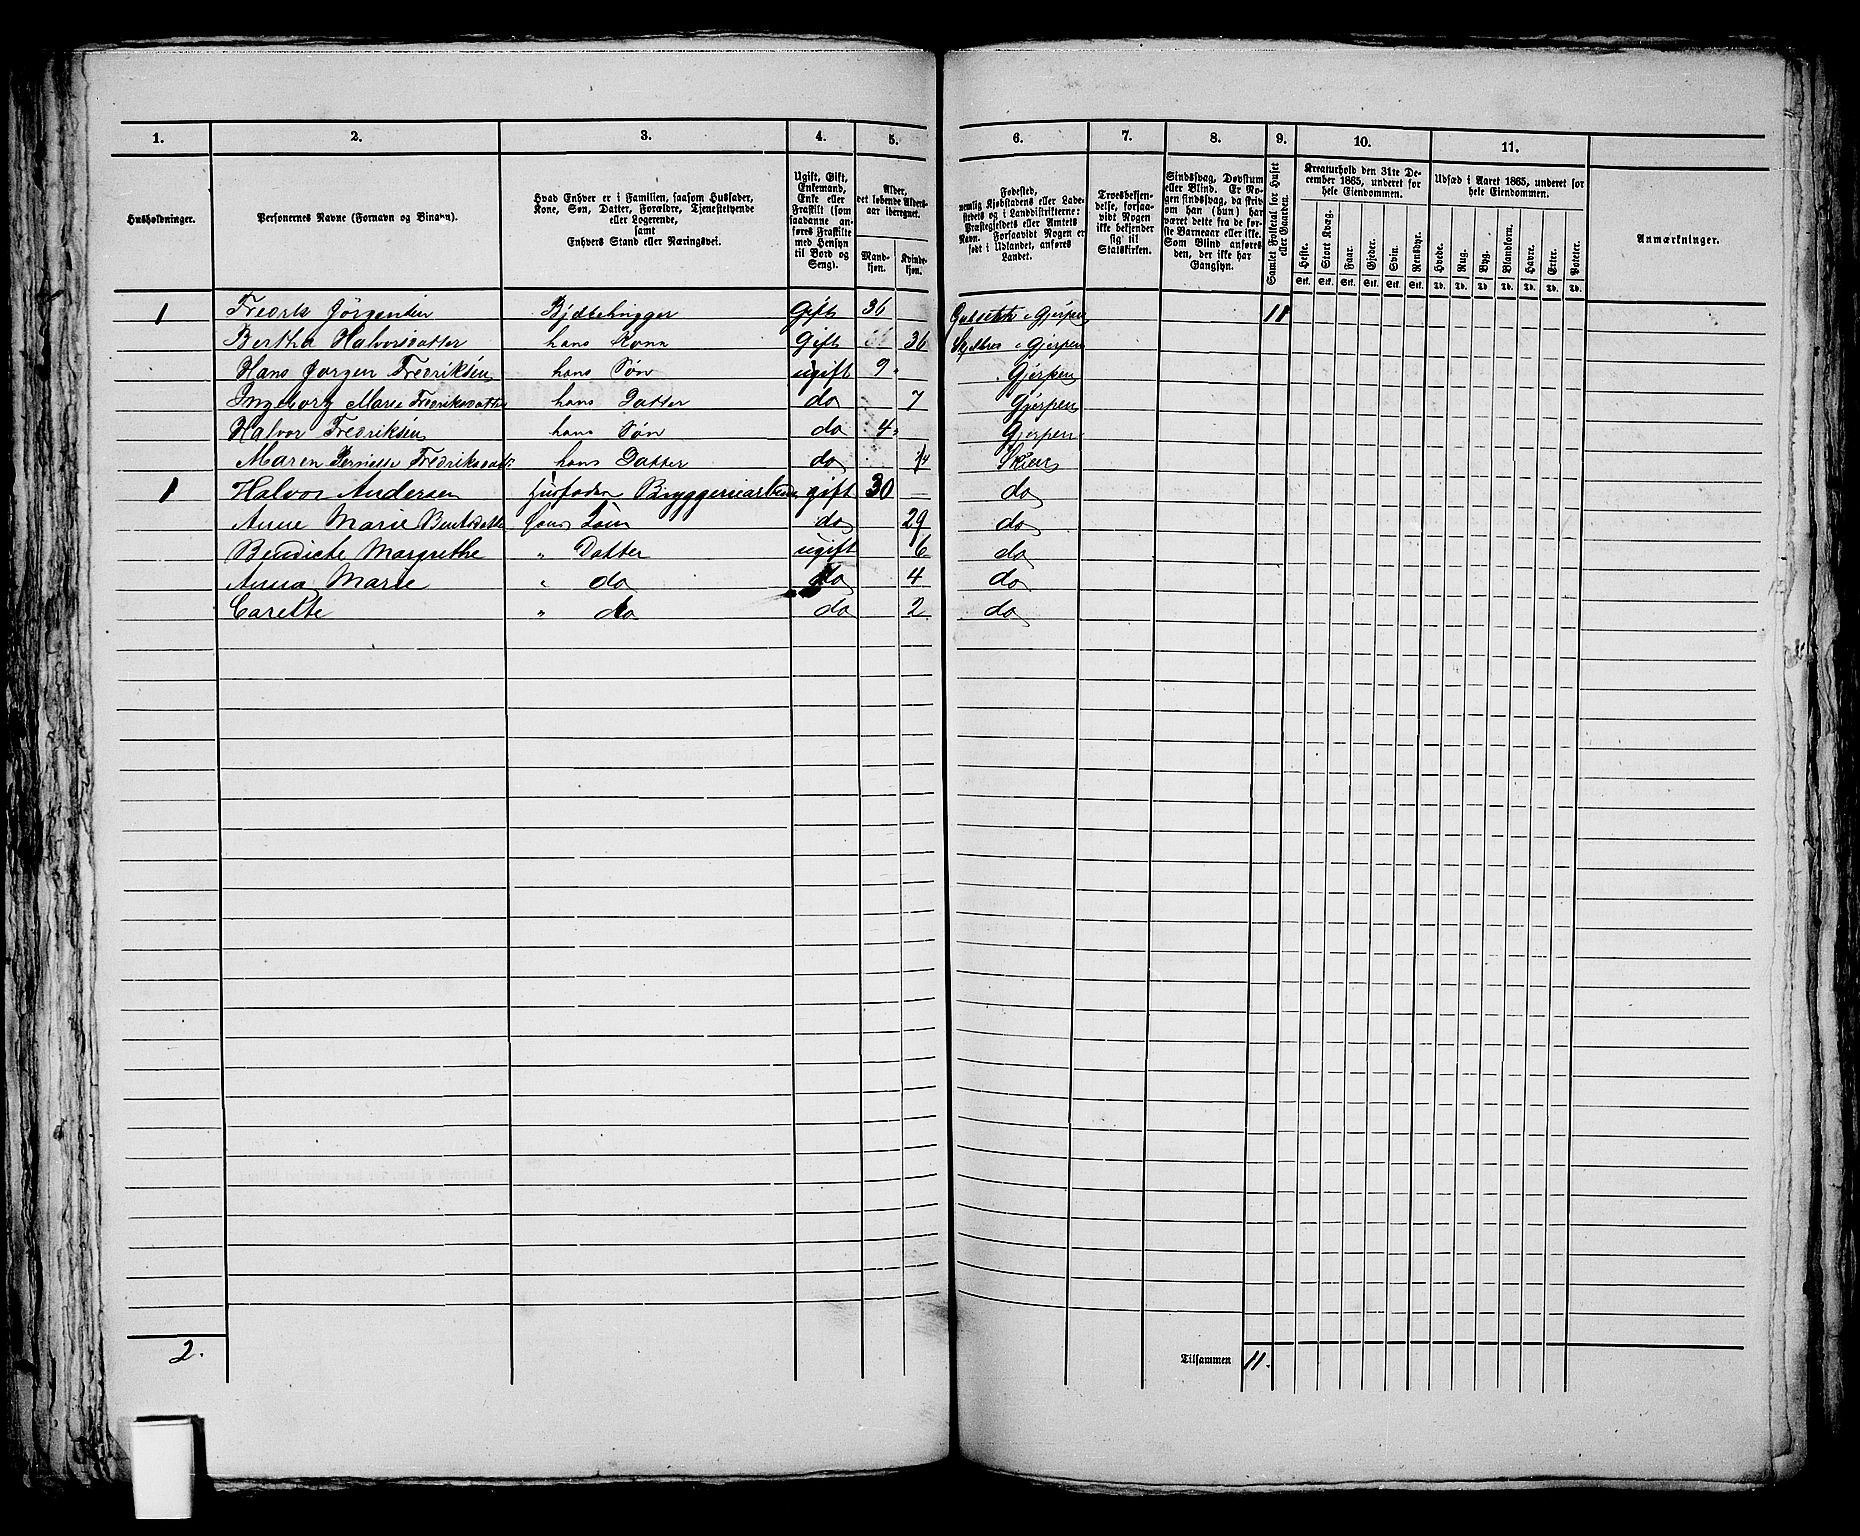 1. 2. 3. 4. 5. 6. 7. 8. 9. 10. 11.
Husholdninger.
Personernes Navne (Fornavn og Binavn).
Hvad Enhver er i Familien, saasom Husfader,
Kone, Søn, Datter, Forældre, Tjenestetyende
eller Logerende,
samt
Enhvers Stand eller Næringsvei.
Ugift, Gift,
Enkemand,
Enke eller
Fraskilt (som
saadanne an-
føres Fraskilte
med Hensyn
til Bord og
Seng).
Alder,
det løbende Alders-
aar iberegnet.
Mand-
kjøn.
Kvinde-
kjøn.
Fødested,
nemlig Kjøbstadens eller Lade-
stedets og i Landdistrikterne:
Præstegjeldets eller Amtets
Navn. Forsaavidt Nogen er
født i Udlandet, anføres
Landet.
Troesbekjen-
delse, forsaa-
vidt Nogen
ikke bekjender
sig til
Statskirken.
Sindssvag, Døvstum
eller Blind. Er No-
gen sindssvag, da skriv
om han (hun) har
været dette fra de før-
ste Barneaar eller ikke.
Som Blind anføres
den, der ikke har
Gangsyn.
Samlet Folketal for Huset
eller Gaarden.
Kreaturhold den 31te De-
cember 1865, underet for
hele Eiendommen.
Heste. Stort Kvæg. Faar. Gjeder. Svin. Rensdyr.
Stk. Stk. Stk. Stk. Stk. Stk.
Udsæd i Aaret 1865, underet for
hele Eiendommen.
Hvede. Rug. Byg. Blandkorn. Havre. Erter. Poteter.
Td. Td. Td. Td. Td. Td. Td.
Anmærkninger.
1 Fredrik Jørgensen Gift 36 i Gjerpen 11
Bertha Halvorsdatter hans Kona Gift 36 i Gjerpen
Hans Jørgen Fredriksen hans Søn ugift 9 Gjerpen
Ingeborg Marie Fredriksdatter hans Datter do 7 Gjerpen
Halvor Fredriksen hans Søn do 4 Gjerpen
Maren Fredriksdatt: hans Datter do Skien
1 Halvor Andersen Husfader Bryggeriarbeider gift 30 do
Anne Marie hans Kone do 29 do
Bendicte Margrethe " Datter ugift 6 do
Anna Marie " do do 4 do
Carette " do do 2 do
2. Tilsammen 11.